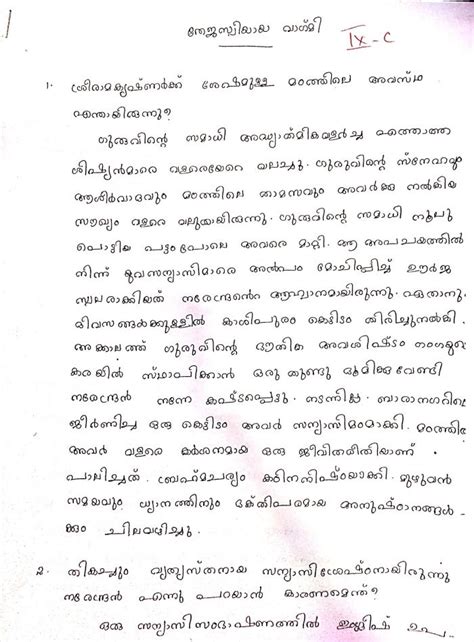 തേജസ്വിയായ വാഗ്മി
IX-C
1. ശ്രീരാമകൃഷ്ണർക്ക് ശേഷമുള്ള മഠത്തിലെ അവസ്ഥ
എന്തായിരുന്നു?
ഗുരുവിന്റെ സമാധി അദ്ധ്യാത്മികവളർച്ച എത്താത്ത
ശിഷ്യൻമാരെ വളരെയേറെ വലച്ചു. ഗുരുവിന്റെ സ്നേഹവും
ആശീർവാദവും മഠത്തിലെ താമസവും അവർക്കു നൽകിയ
സൗഖ്യം വളരെ വലുതായിരുന്നു. ഗുരുവിന്റെ സമാധി നൂലു
പൊട്ടിയ പട്ടംപോലെ അവരെ മാറ്റി. ആ അപചയത്തിൽ
നിന്ന് യുവസന്യാസിമാരെ അൽപം മോചിപ്പിച്ച് ഊർജ
സ്വലരാക്കിയത് നരേന്ദ്രന്റെ ആഹ്വാനമായിരുന്നു. ഏതാനും
ദിവസങ്ങൾക്കുള്ളിൽ കാശിപുരം കെട്ടിടം തിരിച്ചുനൽകി.
അക്കാലത്ത് ഗുരുവിന്റെ ഭൗതിക അവശിഷ്ടം ഗംഗയുടെ
കരയിൽ സ്ഥാപിക്കാൻ ഒരു തുണ്ടു ഭൂമിക്കുവേണ്ടി
നരേന്ദ്രൻ നന്നേ കഷ്ടപ്പെട്ടു. നടന്നില്ല. ബാരാനഗറിലെ
ജീർണിച്ച ഒരു കെട്ടിടം അവർ സന്യാസിമഠമാക്കി. മഠത്തിൽ
അവർ വളരെ കർശനമായ ഒരു ജീവിതരീതിയാണ്
പാലിച്ചത്. ബ്രഹ്മചര്യം കഠിനനിഷ്ഠയാക്കി. മുഴുവൻ
സമയവും ധ്യാനത്തിനും ഭക്തിപരമായ അനുഷ്ഠാനങ്ങൾ-
ക്കും ചിലവഴിച്ചു.
2. തികച്ചും വ്യത്യസ്തനായ സന്യാസിശ്രേഷ്ഠനായിരുന്നു
നരേന്ദ്രൻ എന്നു പറയാൻ കാരണമെന്ത്?
ഒരു സന്യാസിസംഭാഷണത്തിൽ